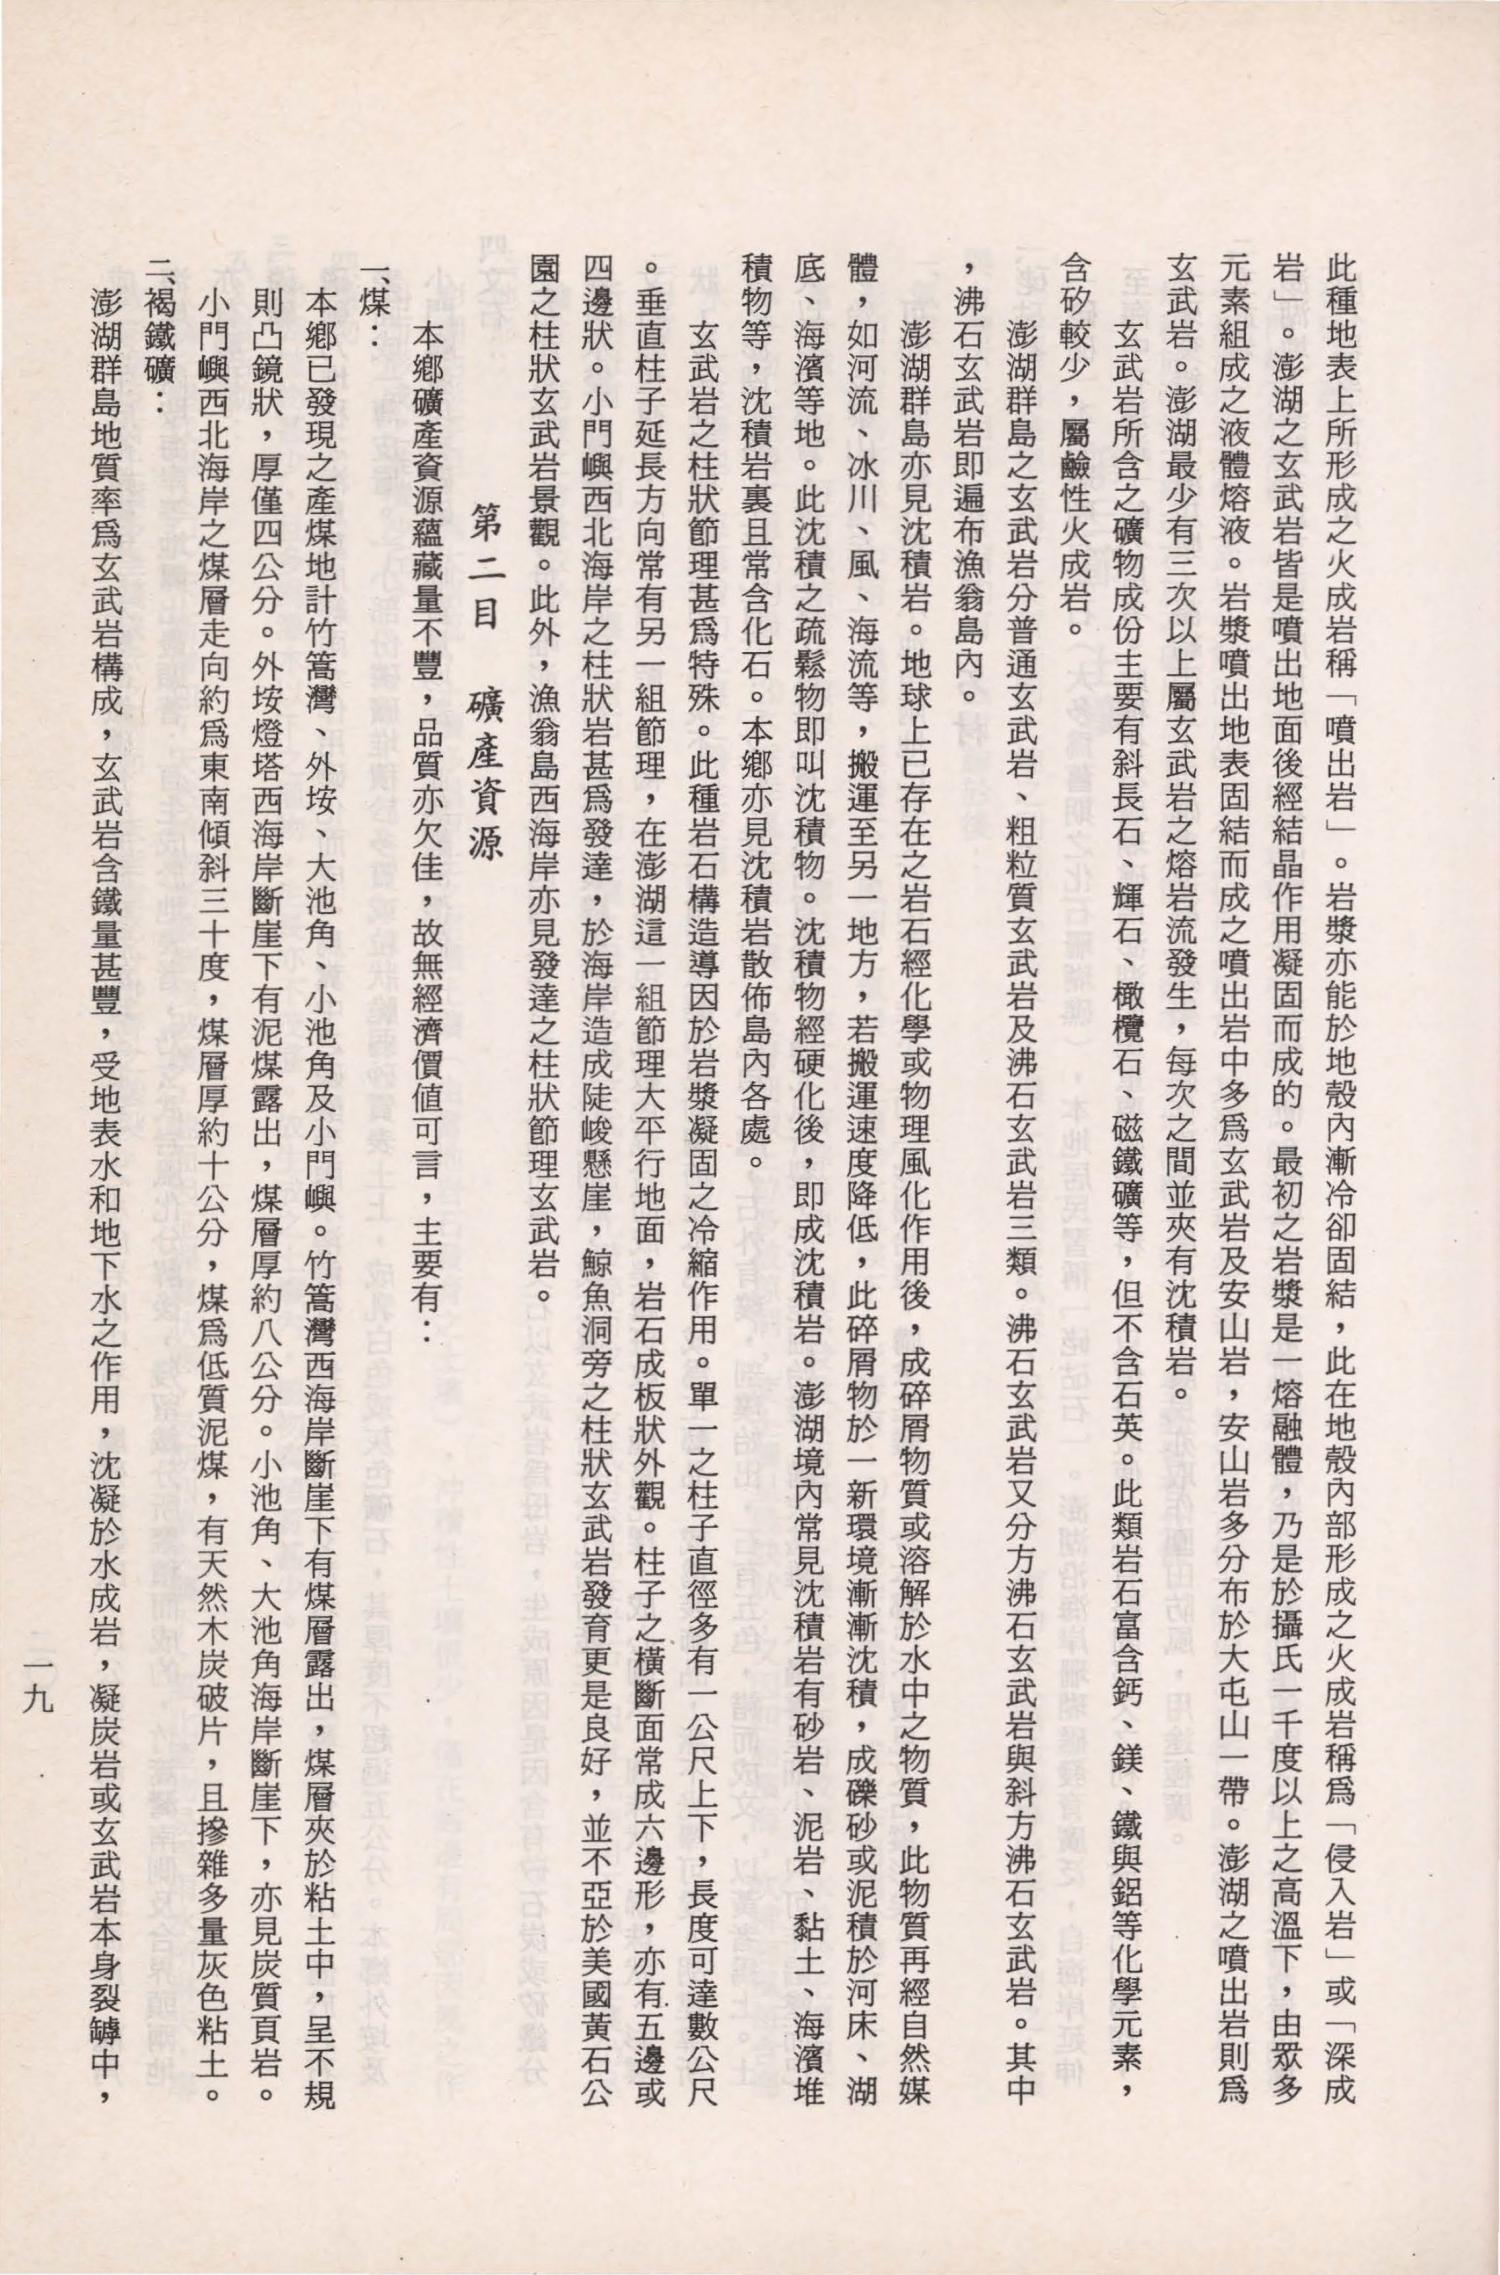 此種地表上所形成之火成岩稱「噴出岩」。岩漿亦能於地殼內漸冷卻固結，此在地殼內部形成之火成岩稱爲「侵入岩」或「深成
岩」。澎湖之玄武岩皆是噴出地面後經結晶作用凝固而成的。最初之岩漿是一熔融體，乃是於攝氏一千度以上之高溫下，由眾多
元素組成之液體熔液。岩漿噴出地表固結而成之噴出岩中多爲玄武岩及安山岩，安山岩多分布於大屯山一帶。澎湖之噴出岩則爲
玄武岩。澎湖最少有三次以上屬玄武岩之熔岩流發生，每次之間並夾有沈積岩。
玄武岩所含之礦物成份主要有斜長石、輝石、橄欖石、磁鐵礦等，但不含石英。此類岩石富含鈣、鎂、鐵與鋁等化學元素，
含矽較少，屬鹼性火成岩。
澎湖群島之玄武岩分普通玄武岩、粗粒質玄武岩及沸石玄武岩三類。沸石玄武岩又分方沸石玄武岩與斜方沸石玄武岩。其中
，沸石玄武岩即遍布漁翁島內。
澎湖群島亦見沈積岩。地球上已存在之岩石經化學或物理風化作用後，成碎屑物質或溶解於水中之物質，此物質再經自然媒
體，如河流、冰川、風、海流等，搬運至另一地方，若搬運速度降低，此碎屑物於一新環境漸漸沈積，成礫砂或泥積於河床、湖
底、海濱等地。此沈積之疏鬆物即叫沈積物。沈積物經硬化後，即成沈積岩。澎湖境內常見沈積岩有砂岩、泥岩、黏土、海濱堆
積物等，沈積岩裏且常含化石。本鄉亦見沈積岩散佈島內各處。
玄武岩之柱狀節理甚爲特殊。此種岩石構造導因於岩漿凝固之冷縮作用。單一之柱子直徑多有一公尺上下，長度可達數公尺
。垂直柱子延長方向常有另一組節理，在澎湖這一組節理大平行地面，岩石成板狀外觀。柱子之橫斷面常成六邊形，亦有五邊或
四邊狀。小門嶼西北海岸之柱狀岩甚爲發達，於海岸造成陡峻懸崖，鯨魚洞旁之柱狀玄武岩發育更是良好，並不亞於美國黃石公
園之柱狀玄武岩景觀。此外，漁翁島西海岸亦見發達之柱狀節理玄武岩。
第二目　礦產資源
本鄉礦產資源蘊藏量不豐，品質亦欠佳，故無經濟價值可言，主要有：
一、煤：
本鄉已發現之產煤地計竹篙灣、外垵、大池角、小池角及小門嶼。竹篙灣西海岸斷崖下有煤層露出，煤層夾於粘土中，呈不規
則凸鏡狀，厚僅四公分。外垵燈塔西海岸斷崖下有泥煤露出，煤層厚約八公分。小池角、大池角海岸斷崖下，亦見炭質頁岩。
小門嶼西北海岸之煤層走向約爲東南傾斜三十度，煤層厚約十公分，煤爲低質泥煤，有天然木炭破片，且摻雜多量灰色粘土。
二、褐鐵礦：
澎湖群島地質率爲玄武岩構成，玄武岩含鐵量甚豐，受地表水和地下水之作用，沈凝於水成岩，凝炭岩或玄武岩本身裂罅中，
一九